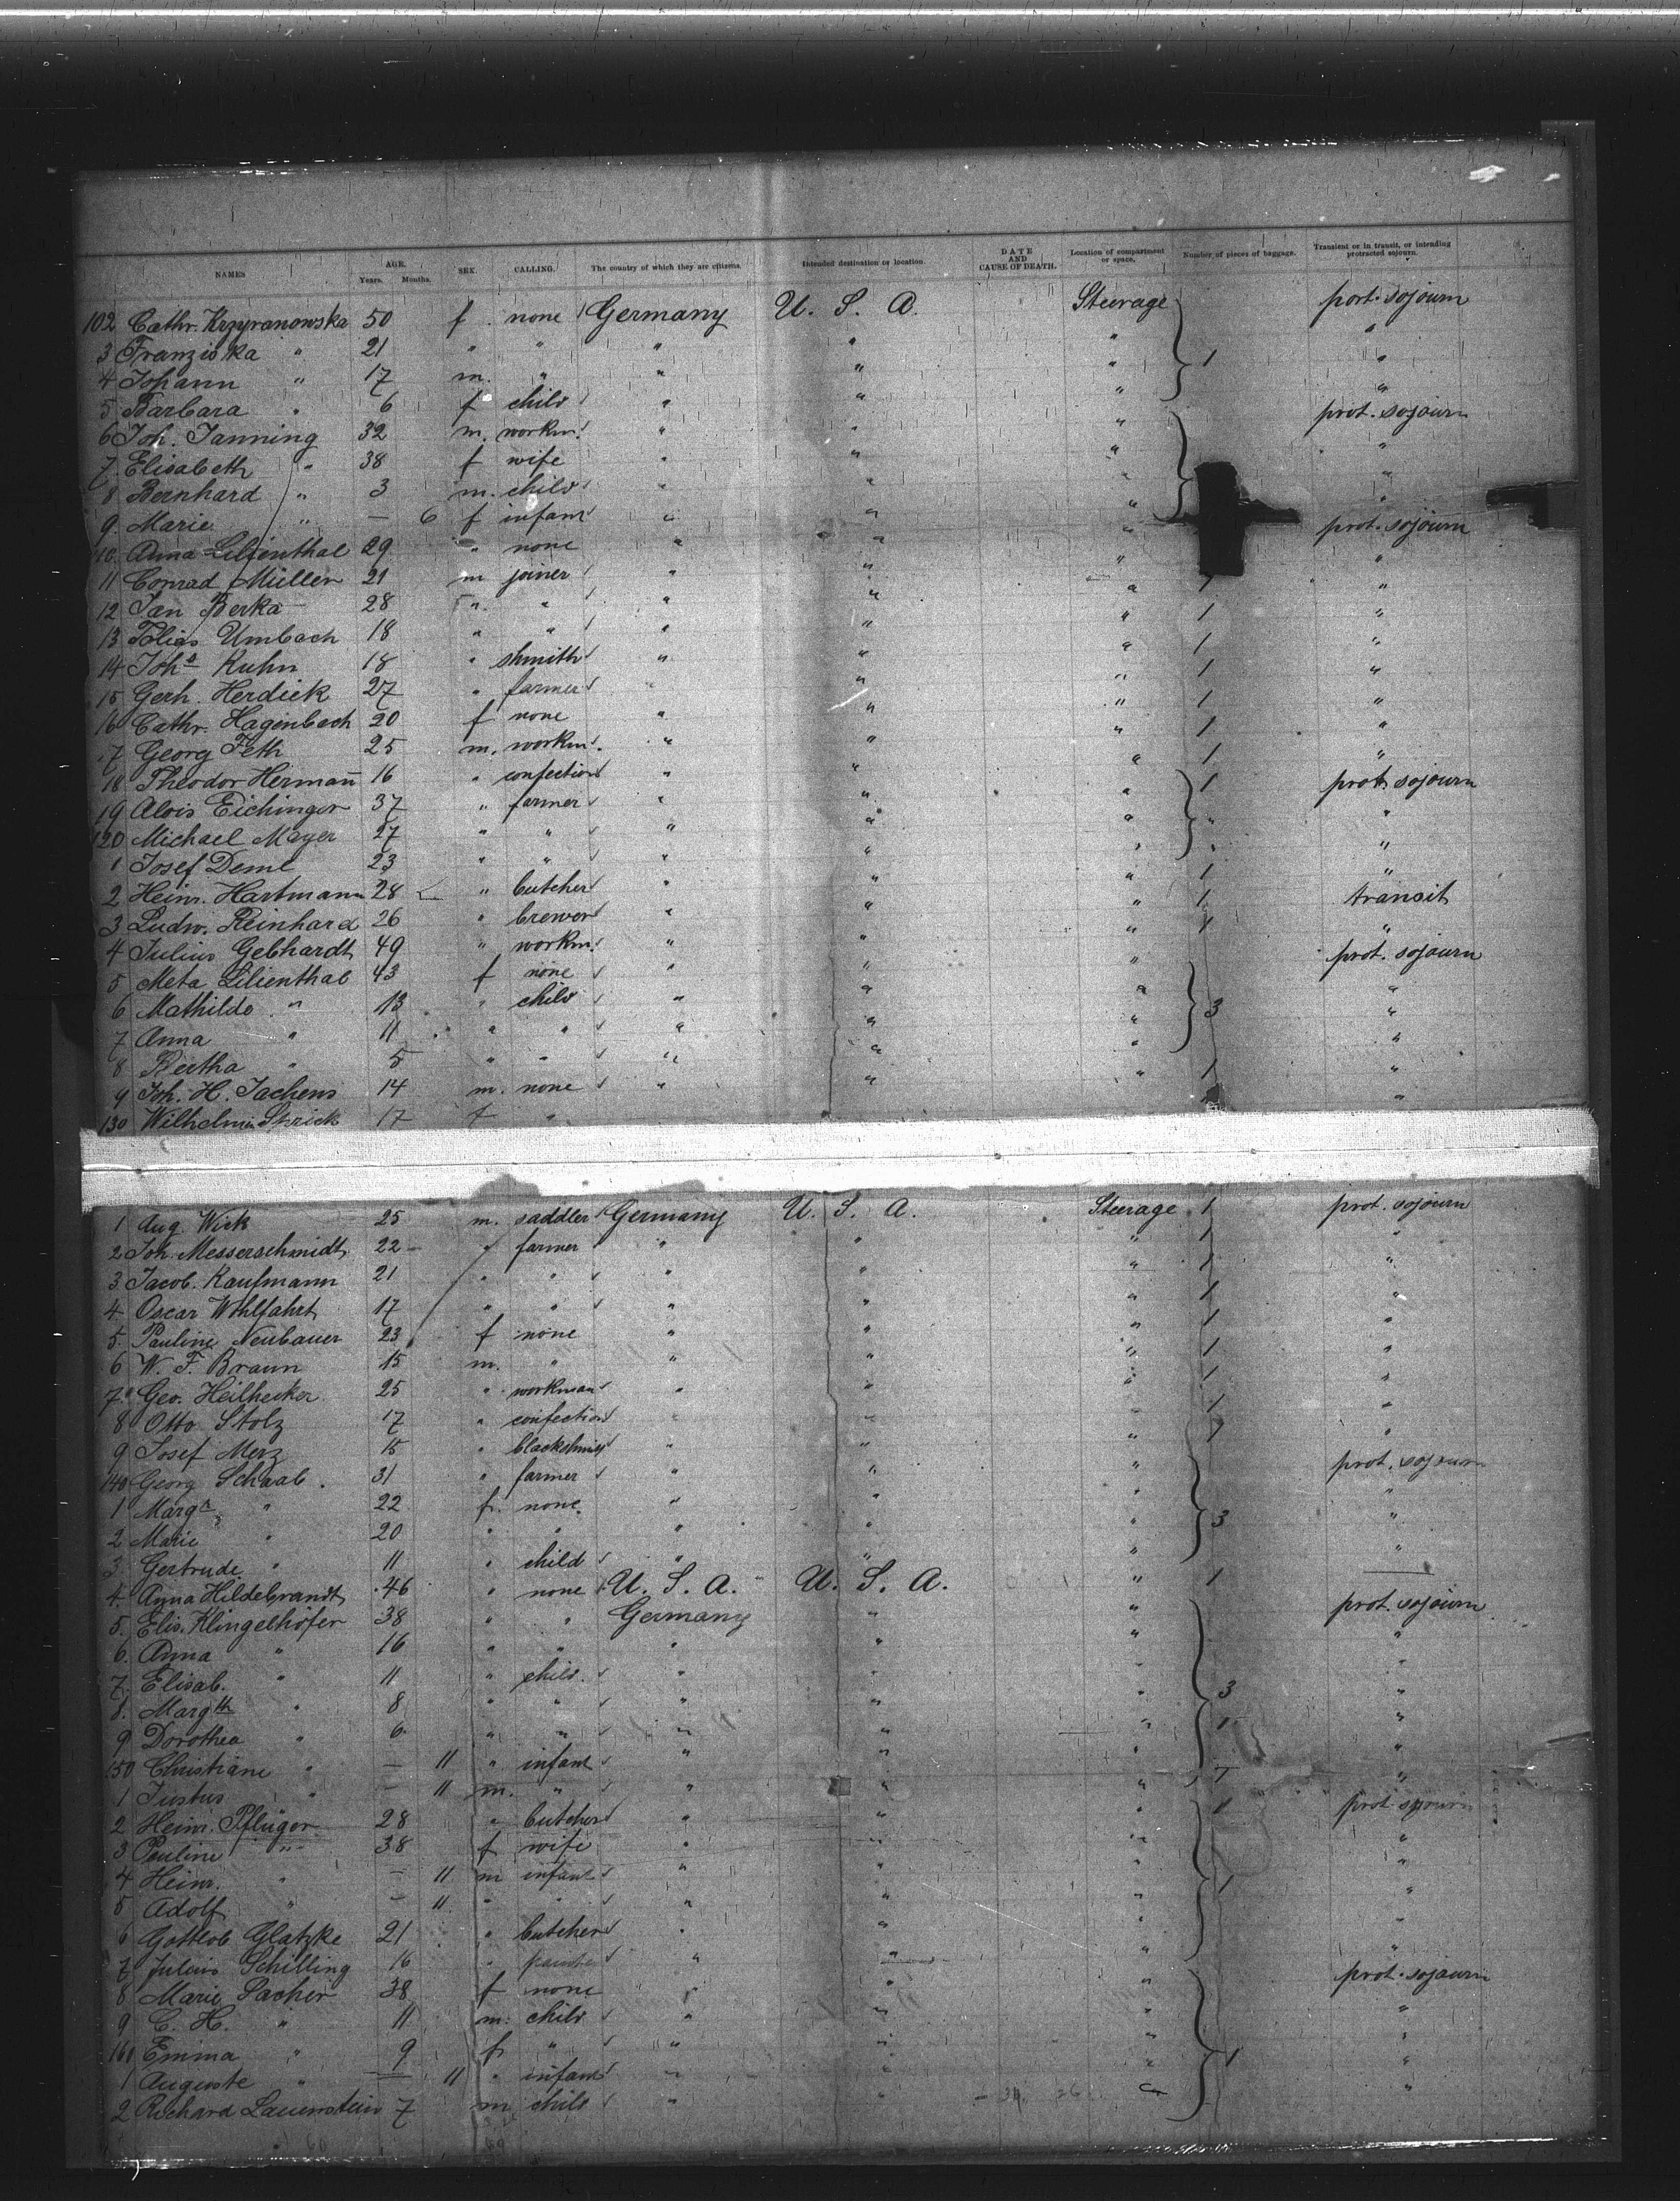 NAMES AGE. Years. Months. SEX. CALLING. The country of which they are citizens. Intended destination or location. DATE AND CAUSE OF DEATH. Location of compartment or space. Number of pieces of baggage. Transient or in transit, or intending protracted sojourn.
102 Cathr. Krzyranowska 50 f. none Germany U. S. A. Steerage port. sojourn
3 Franziska " 21 " " " " " "
4 Johann " 17 m. " " " " 1 "
5 Barbara " 6 f child " " " "
6 Joh. Janning 32 m. workm. " " " prot. sojourn
7 Elisabeth " 38 f wife " " " "
8 Bernhard " 3 m. child " " " "
9. Marie " — 6 f infant " " " "
10. Anna Lilienthal 29 " none " " " prot. sojourn
11 Conrad Müller 21 m joiner " " " "
12 Jan Berka 28 " " " " " 1 "
13 Tobias Umbach 18 " " " " " 1 "
14 Joha Kuhn 18 " shmith " " " 1 "
15 Gerh. Herdick 27 " farmer " " " 1 "
16 Cathr. Hagenbach 20 f none " " " 1 "
17 Georg Feth 25 m. workm. " " " 1 "
18 Theodor Hermañ 16 " confection " " " 1 "
19 Alois Eichinger 37 " farmer " " " 1 prot. sojourn
120 Michael Mayer 27 " " " " " " "
1 Josef Deml 23 " " " " " " "
2 Heinr. Hartmann 28 " butcher " " " 1 "
3 Ludw. Reinhard 26 " brewer " " " 1 transit
4 Julius Gebhardt 49 " workm. " " " 1 "
5 Meta Lilienthal 43 f none " " " prot. sojourn
6 Mathilde " 13 " child " " " 3 "
7 Anna " 11 " " " " " "
8 Bertha " 5 " " " " " "
9 Joh. H. Jachens 14 m. none " " " 1 "
130 Wilhelmin Sprick 17 f " "
1 Aug. Wick 25 m. saddler Germany U. S. A. Steerage 1 prot. sojourn
2 Joh. Messerschmidt 22 " farmer " " " 1 "
3 Jacob. Kaufmann 21 " " " " " 1 "
4. Oscar Wohlfahrt 17 " " " " " 1 "
5. Pauline Neubauer 23 f none " " " 1 "
6 W. F. Braun 15 m. " " " " 1 "
7. Geo. Heilhecker 25 " workman " " " 1 "
8 Otto Stolz 17 " confection " " " 1 "
9 Josef Merz 15 " blackshmith " " " 1 "
140 Georg Schaab. 31 " farmer " " " prot. sojourn
1 Marga " 22 f. none " " " "
2 Marie " 20 " " " " " 3 "
3 Gertrude " 11 " child " " " "
4. Anna Hildebrandt 46 " none U. S. A. U. S. A. " 1 —
5. Elis. Klingelhöfer 38 " " Germany " " prot. sojourn
6. Anna " 16 " " " " " "
7. Elisab. " 11 " child. " " " "
8. Margth " 8 " " " " " 3 "
9 Dorothea " 6 " " " " " 1 "
150 Christiane " — 11 " infant " " " "
1 Justus " — 11 m. " " " " "
2 Heinr. Pflüger 28 " butcher " " " 1 prot. sojourn
3 Pauline " 38 f wife " " " "
4 Heinr. " — 11 m infant " " " 1 "
5 Adolf " — 11 " " " " " "
6 Gottlob Glatzke 21 " butcher " " " "
7 Julius Schilling 16 " painter " " " "
8 Marie Sacher 38 f none " " " prot. sojourn
9 C. H. " 11 m. child " " " "
160 Emma " 9 f " " " " "
1 Auguste " — 11 " infant " " " 1 "
2 Richard Lauenstein 7 m child " " " "